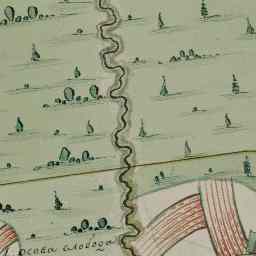 осова слобода